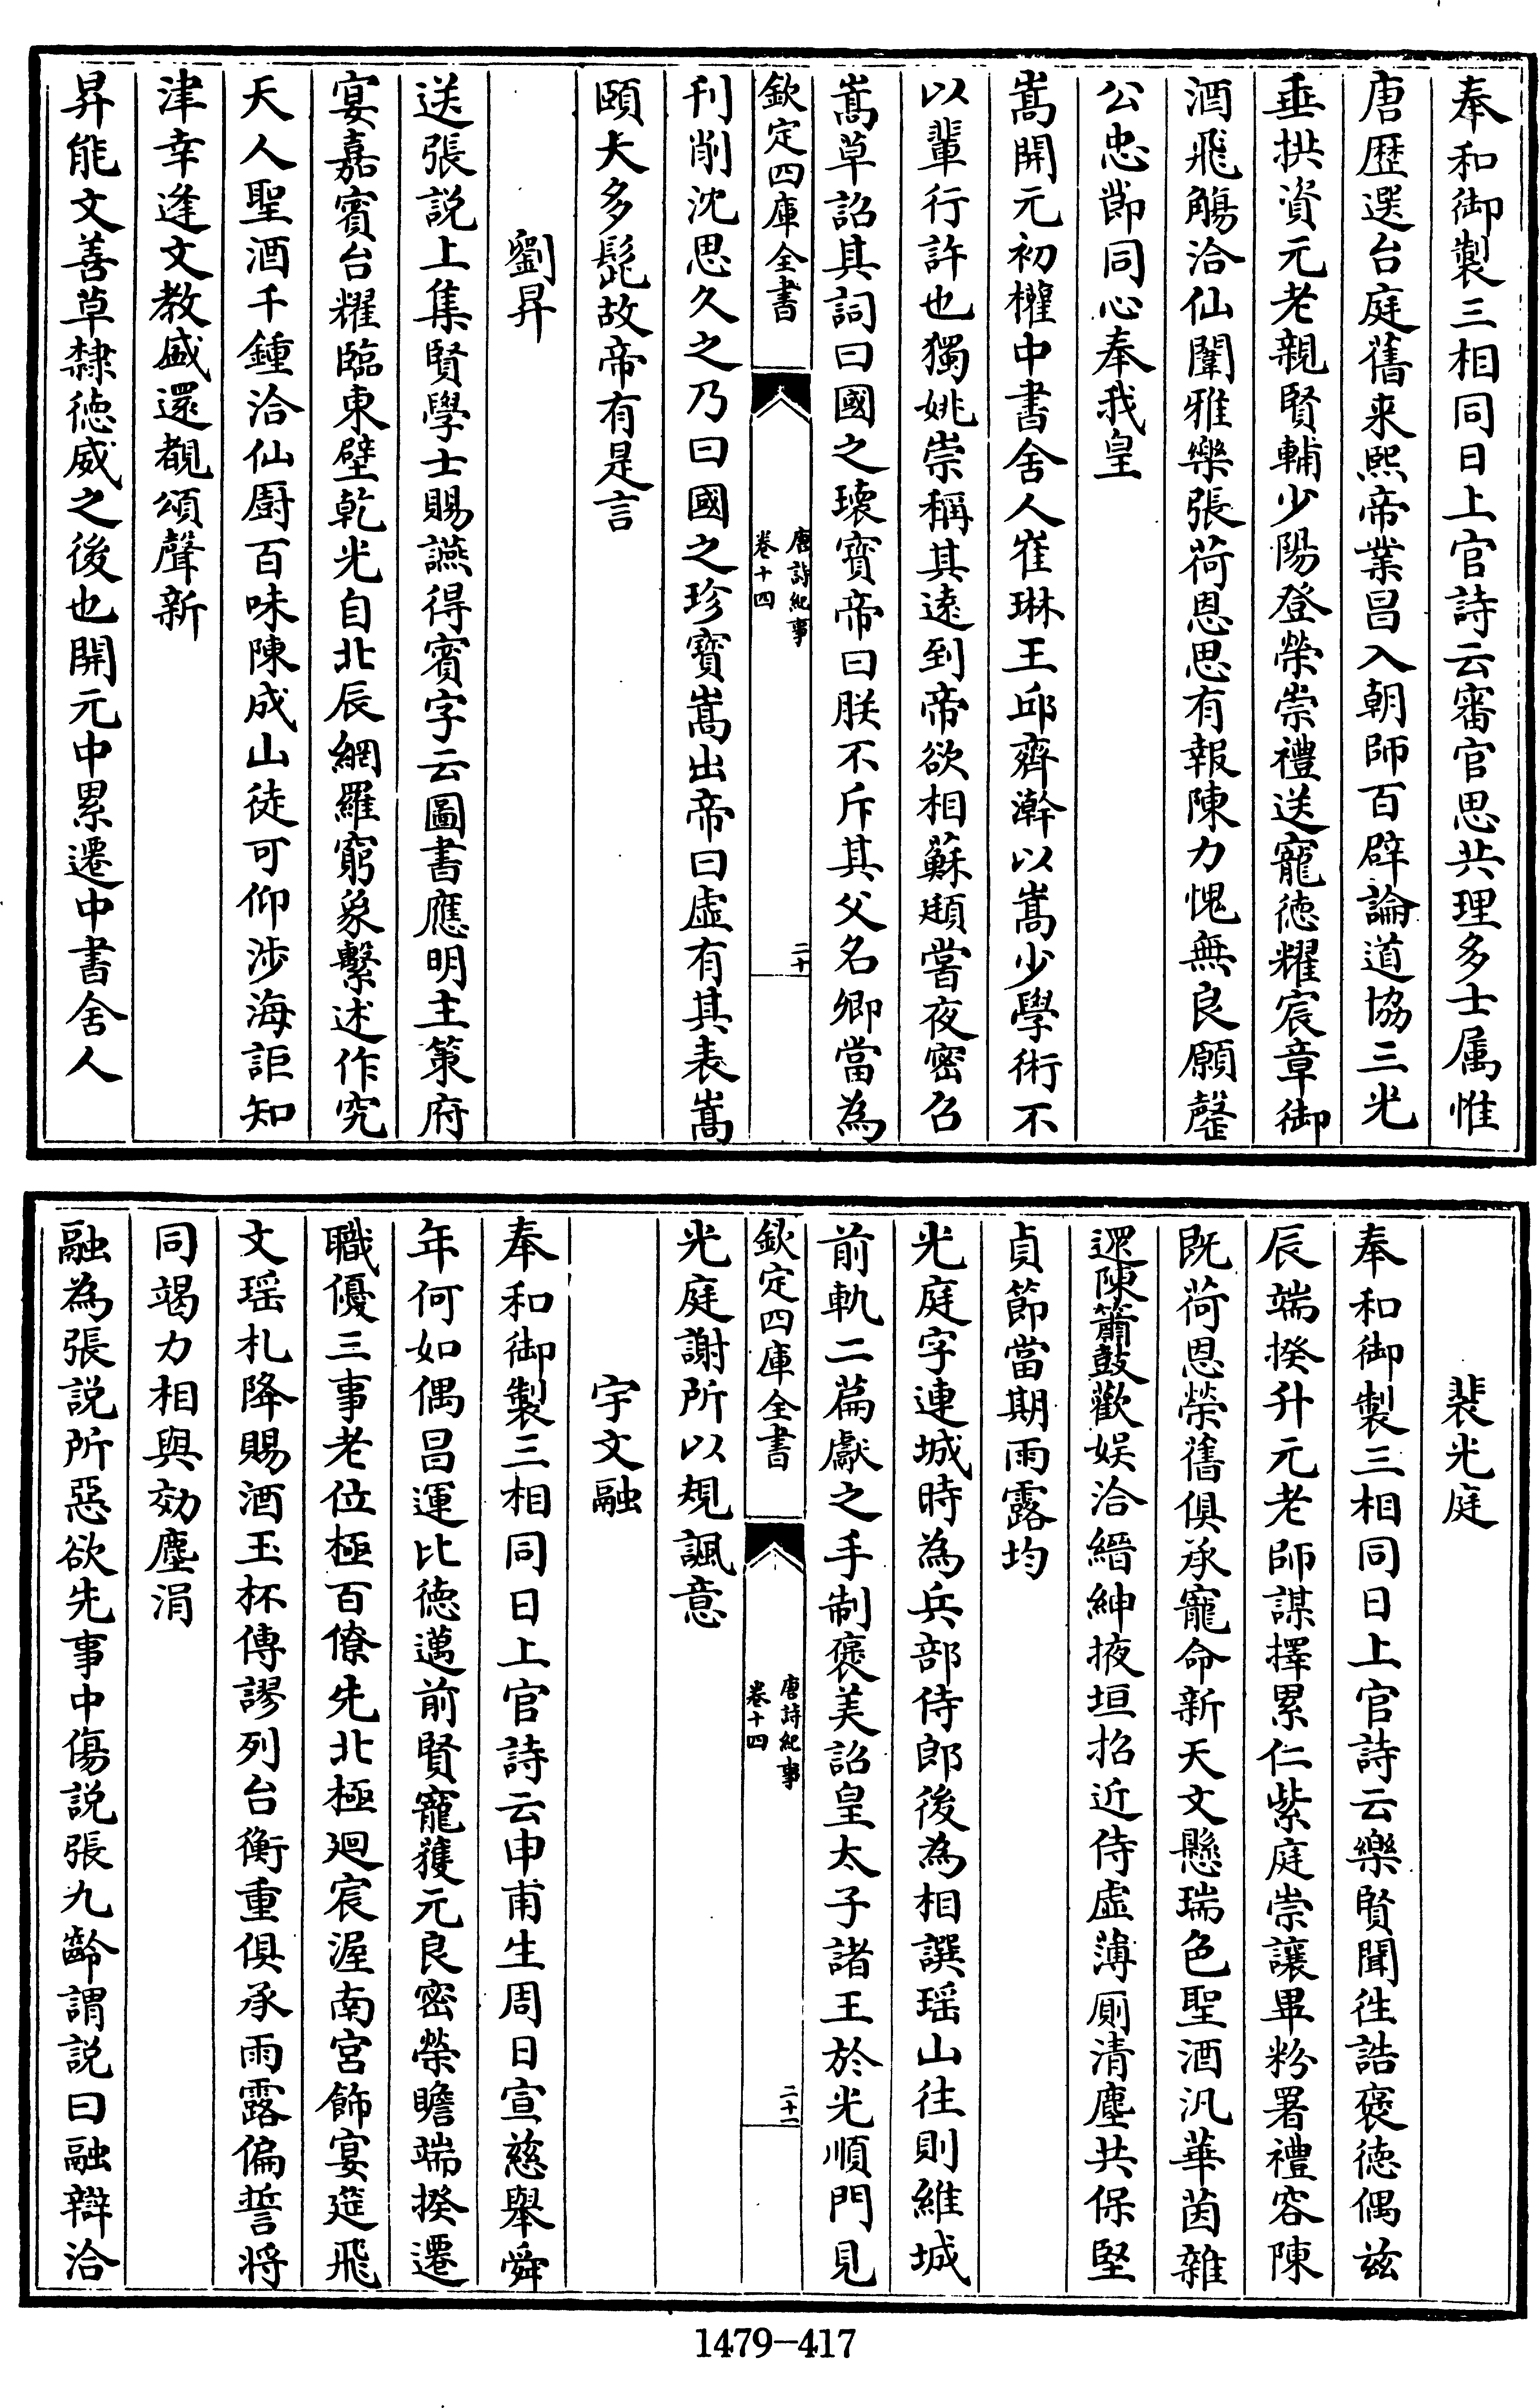 奉和御製三相同日上官詩云審官思共理多士属惟
唐歴選台庭舊来熙帝業昌入朝師百辟論道協三光
垂拱資元老親賢輔少陽登榮崇禮送寵徳耀宸章御
酒飛觴洽仙闈雅樂張荷恩思有報陳力愧無良願罄
公忠節同心奉我皇
嵩開元初櫂中書舍人崔琳王邱齊澣以嵩少學術不
以輩行許也獨姚崇稱其遠到帝欲相蘇頲嘗夜密召
嵩草詔其詞曰國之瓌寳帝曰朕不斥其父名卿當為
欽定四庫全書
唐詩紀事
卷十四
二十
刊削沈思久之乃曰國之珍寳嵩出帝曰虚有其表嵩
頤大多髭故帝有是言
劉昇
送張説上集賢學士賜讌得賓字云圖書應明主策府
宴嘉賓台耀臨東壁乾光自北辰網羅窮象繫述作究
天人聖酒千鍾洽仙厨百味陳成山徒可仰渉海詎知
津幸逢文教盛還覩頌聲新
昇能文善草隸徳威之後也開元中累遷中書舍人
裴光庭
奉和御製三相同日上官詩云樂賢聞徃誥褒徳偶兹
辰端揆升元老師謀擇累仁紫庭崇讓畢粉署禮容陳
既荷恩榮舊俱承寵命新天文懸瑞色聖酒汎華茵雜
還陳簫鼓歡娱洽縉紳掖垣招近侍虚薄厠清塵共保堅
貞節當期雨露均
光庭字連城時為兵部侍郎後為相譔瑶山往則維城
前軌二篇獻之手制褒美詔皇太子諸王於光順門見
欽定四庫全書
唐詩紀事
卷十四
二十一
光庭謝所以規諷意
宇文融
奉和御製三相同日上官詩云申甫生周日宣慈舉舜
年何如偶昌運比徳邁前賢寵獲元良密榮瞻端揆遷
職優三事老位極百僚先北極廻宸渥南宮飾宴筵飛
文瑶札降賜酒玉杯傳謬列台衡重俱承雨露偏誓将
同竭力相與効塵涓
融為張説所惡欲先事中傷説張九齡謂説曰融辯洽
1479-417